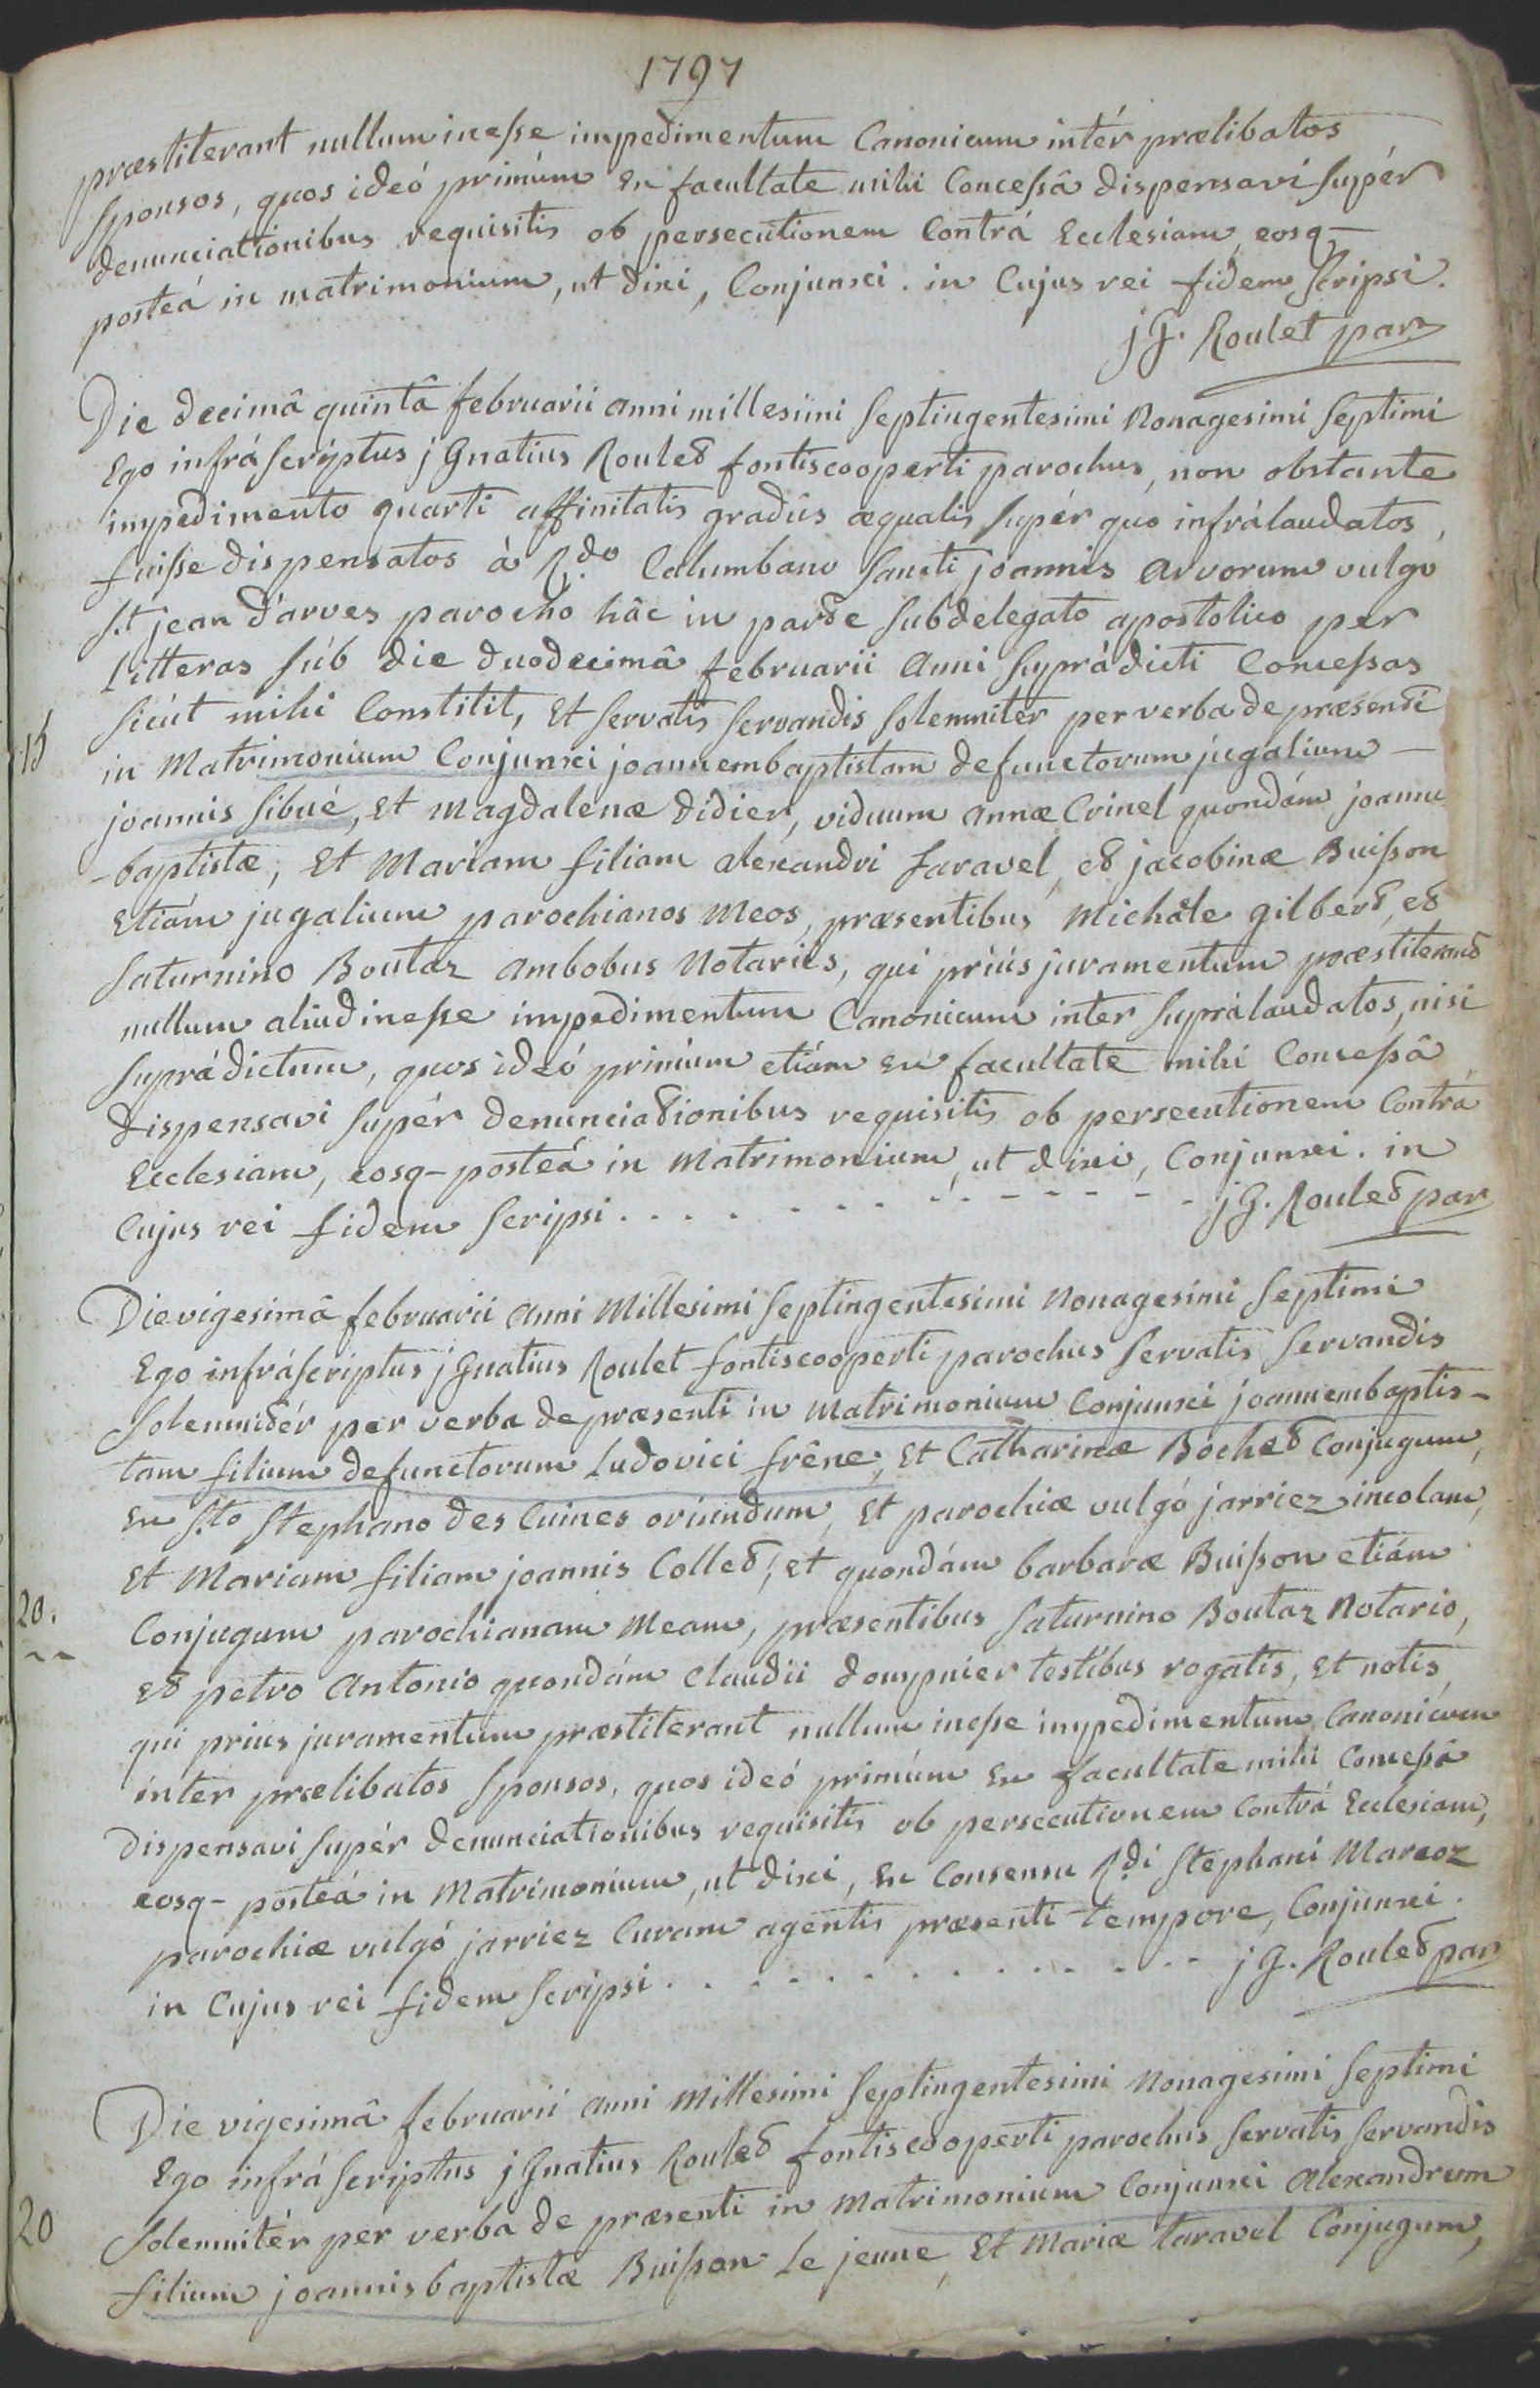 1797
præstiterant nullum inesse impedimentum Canonicum intér prælibatos
Sponsos, quos ideó primùm Ex facultate mihi Concessâ dispensavi supér
denunciationibus requisitis ob persecutionem Contrá Ecclesiam, eosq-
posteá in matrimonium, ut dixi, Conjunxi. in Cujus rei fidem Scripsi.
jg. Roulet par
Die decimâ quintâ februarii anni millesimi Septingentesimi Nonagesimi Septimi
Ego infrá Scriptus jgnatius Roulet fontiscooperti parochus, non obstante
impedimento quarti affinitatis gradûs æqualis supér quo infrálaudatos,
fuisse dispensatos à R.do Columbano Sancti joannis arvorum vulgo
S.t jean d'arves parocho hâc in parte Subdelegato apostolico per
Litteras Súb die duodecimâ februarii anni Suprádicti Concessas
Sicút mihi Constitit, Et Servatis Servandis Solemnitér per verba de præsenti
15
in Matrimonium Conjunxi joannembaptistam defunctorum jugalium -
joannis Sibué, Et Magdalenæ didier, viduum annæ Crinel quondám joannis
-baptistæ, Et Mariam filiam alexandri taravel, et jacobinæ Buisson
Etiám jugalium parochianos Meos, præsentibus Michäle gilbert, et
Saturnino Boutaz ambobus Notariis, qui priús juramentum præstiterant
nullum aliud inesse impedimentum Canonicum inter Suprálaudatos, nisi
Suprádictum, quos ideó primùm etiám Ex facultate mihi Concessâ
dispensavi Supér denunciationibus requisitis ob persecutionem Contrá
Ecclesiam, eosq- posteá in Matrimonium, ut dixi, Conjunxi. in
Cujus rei fidem Scripsi . . . . . . . - - - - - - - jg. Roulet par
Die vigesimâ februarii anni Millesimi Septingentesimi Nonagesimi Septimi
Ego infráscriptus jgnatius Roulet fontiscooperti parochus Servatis Servandis
Solemnitér per verba de præsenti in Matrimonium Conjunxi joannembaptis-
tam filium defunctorum Ludovici frêne, Et Catharinæ Bochet Conjugum,
Ex S.to Stephano des Cuines oriundum, Et parochiæ vulgó jarriez incolam,
Et Mariam filiam joannis Collet, et quondám barbaræ Buisson etiám
20.
Conjugum parochianam Meam, præsentibus Saturnino Boutaz Notario,
Et petro Antonio quondám Claudii dompnier testibus rogatis, Et notis,
qui prius juramentum præstiterant nullum inesse impedimentum Canonicum
inter prælibatos Sponsos, quos ideó primùm Ex facultate mihi Concessâ
dispensavi supér denunciationibus requisitis ob persecutionem Contrá Ecclesiam,
eosq- posteá in Matrimonium, ut dixi, Ex Consensu R.di Stephani Marcoz
parochiæ vulgó jarriez Curam agentis præsenti tempore, Conjunxi.
in Cujus rei fidem Scripsi . . . . . . . . . . . . . . jg. Roulet par
Die vigesimâ februarii anni Millesimi Septingentesimi Nonagesimi Septimi
Ego infrá Scriptus jgnatius Roulet fontiscooperti parochus Servatis Servandis
20
Solemnitér per verba de præsenti in Matrimonium Conjunxi alexandrum
filium joannisbaptistæ Buisson Le jeune, Et Mariæ taravel Conjugum,